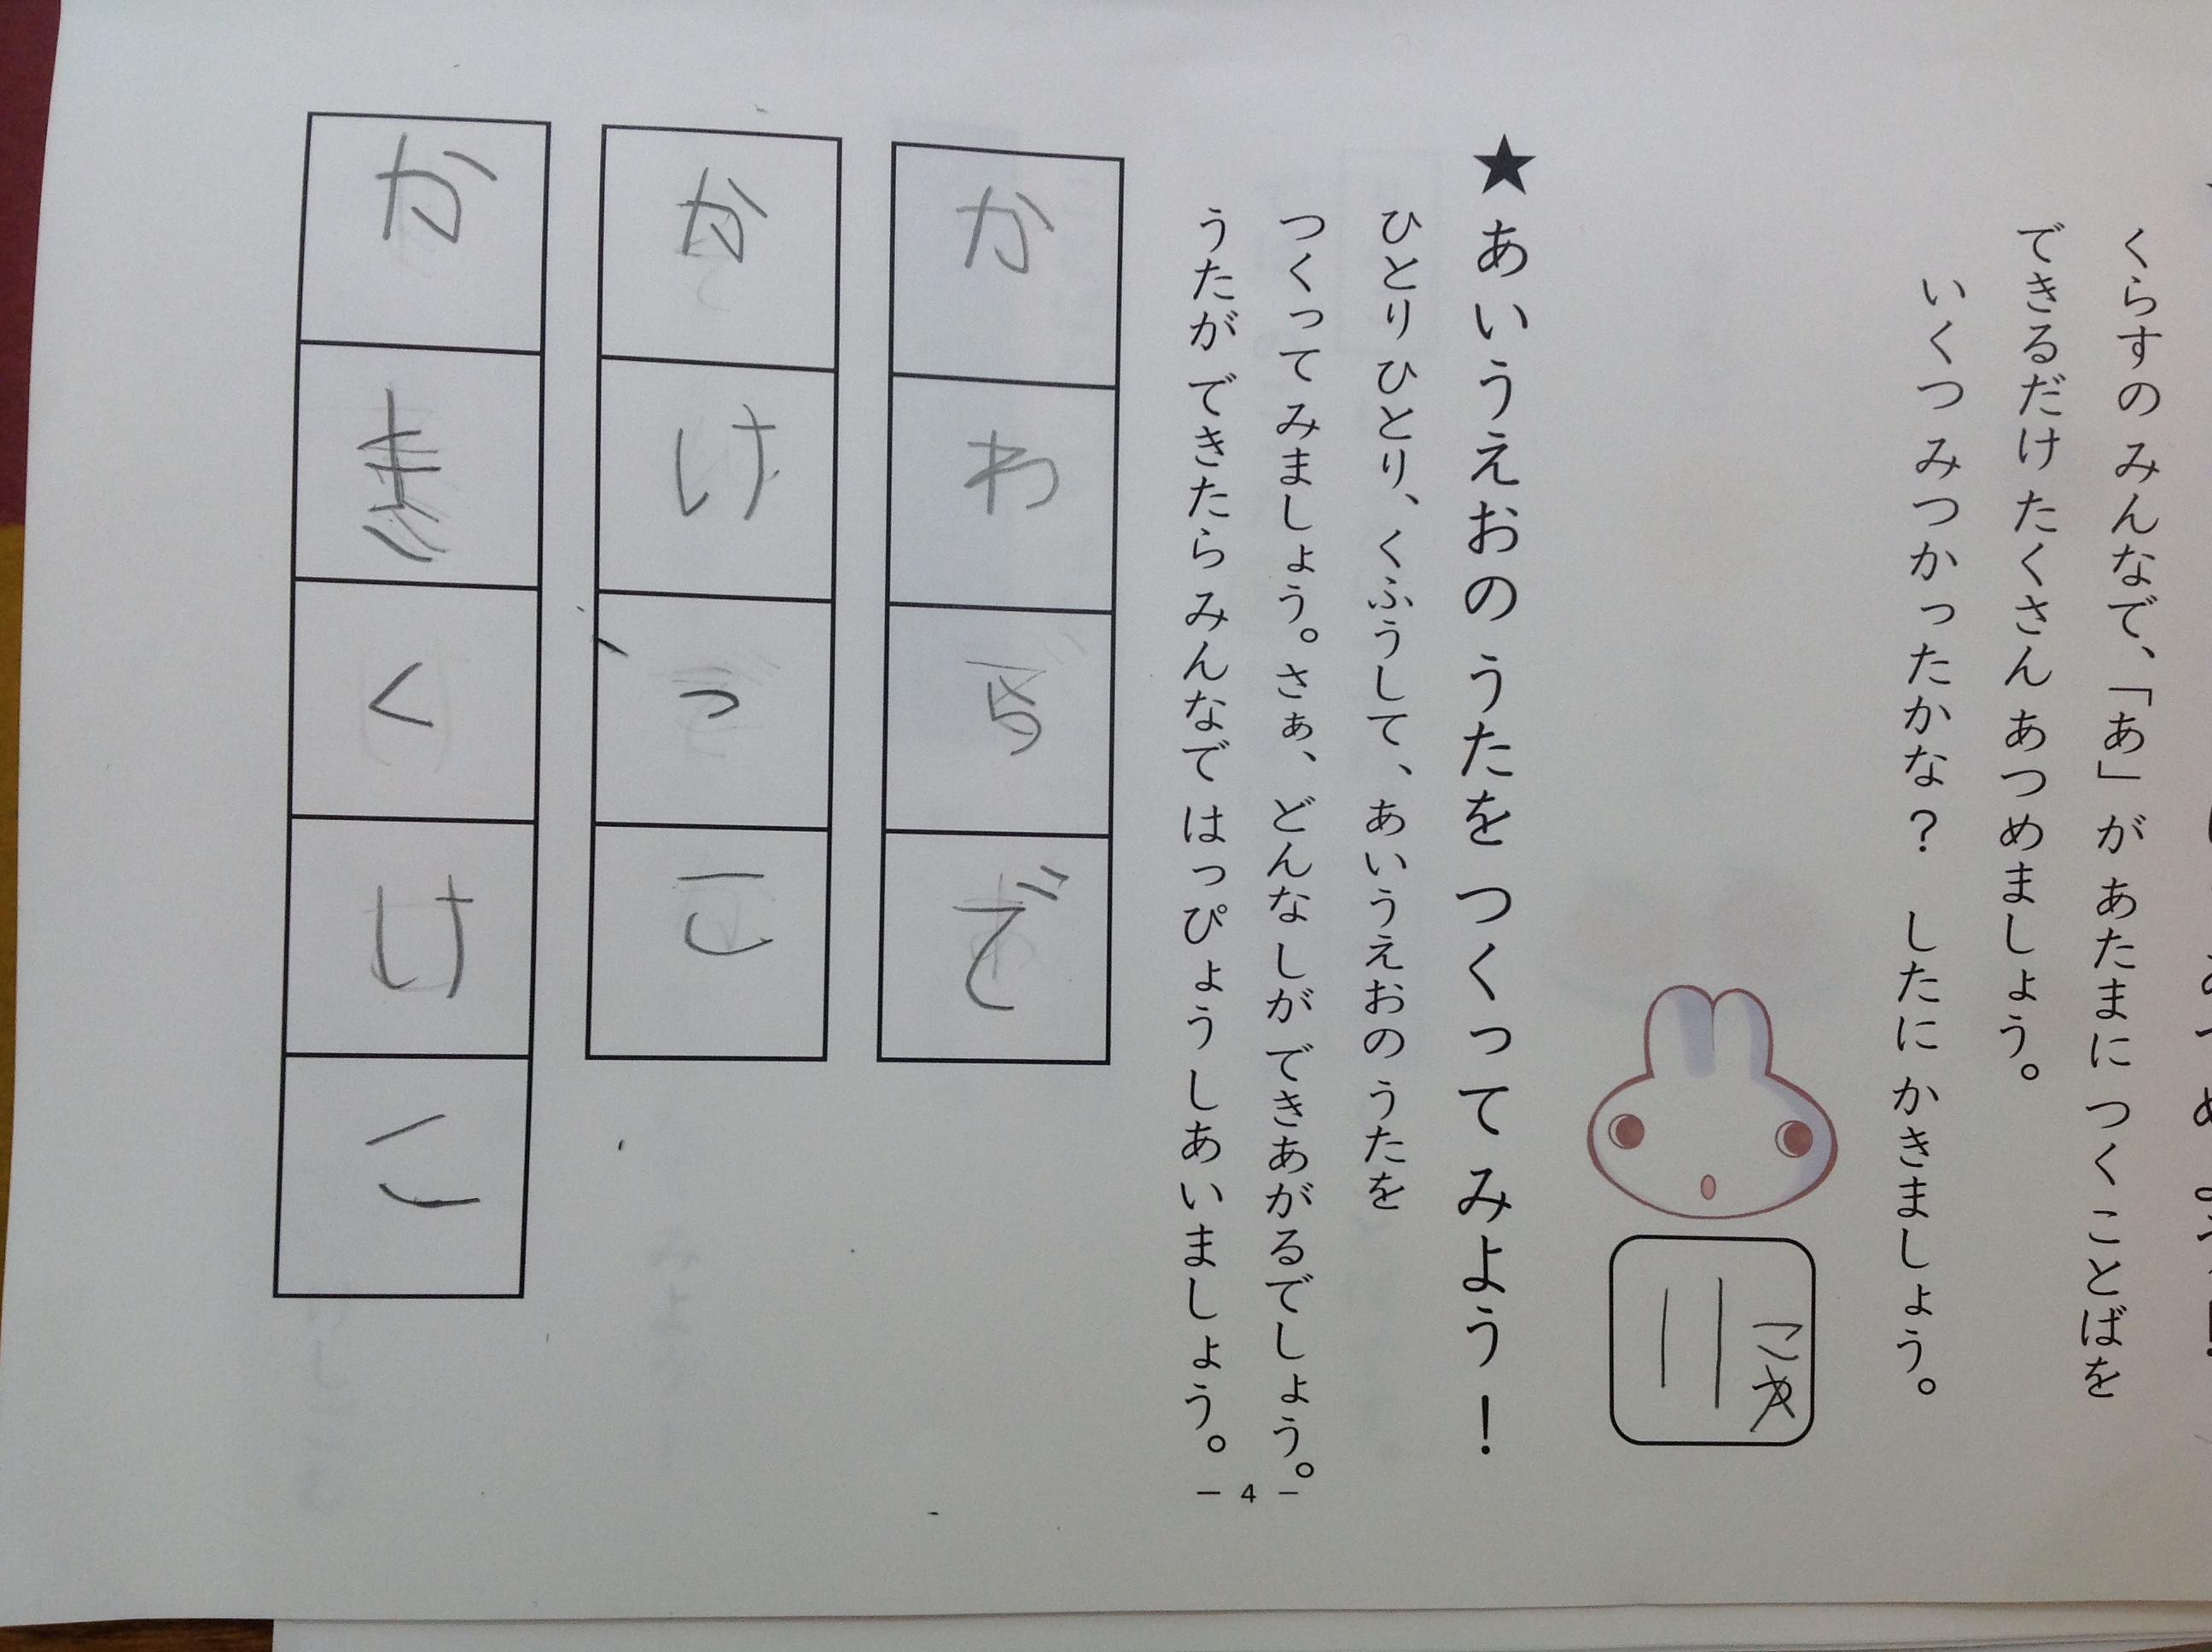 くらすの みんなで、「あ」が あたまに つくことばを
できるだけ たくさん あつめましょう。
いくつ みつかったかな？ したに かきましょう。
こ
★あいうえおの うたを つくって みよう！
ひとりひとり、くふうして、あいうえおの うたを
つくって みましょう。さぁ、どんなしが できあがるでしょう。
うたが できたら みんなで はっぴょう しあいましょう。
かわらで
かけっこ
かきくけこ
− 4 −